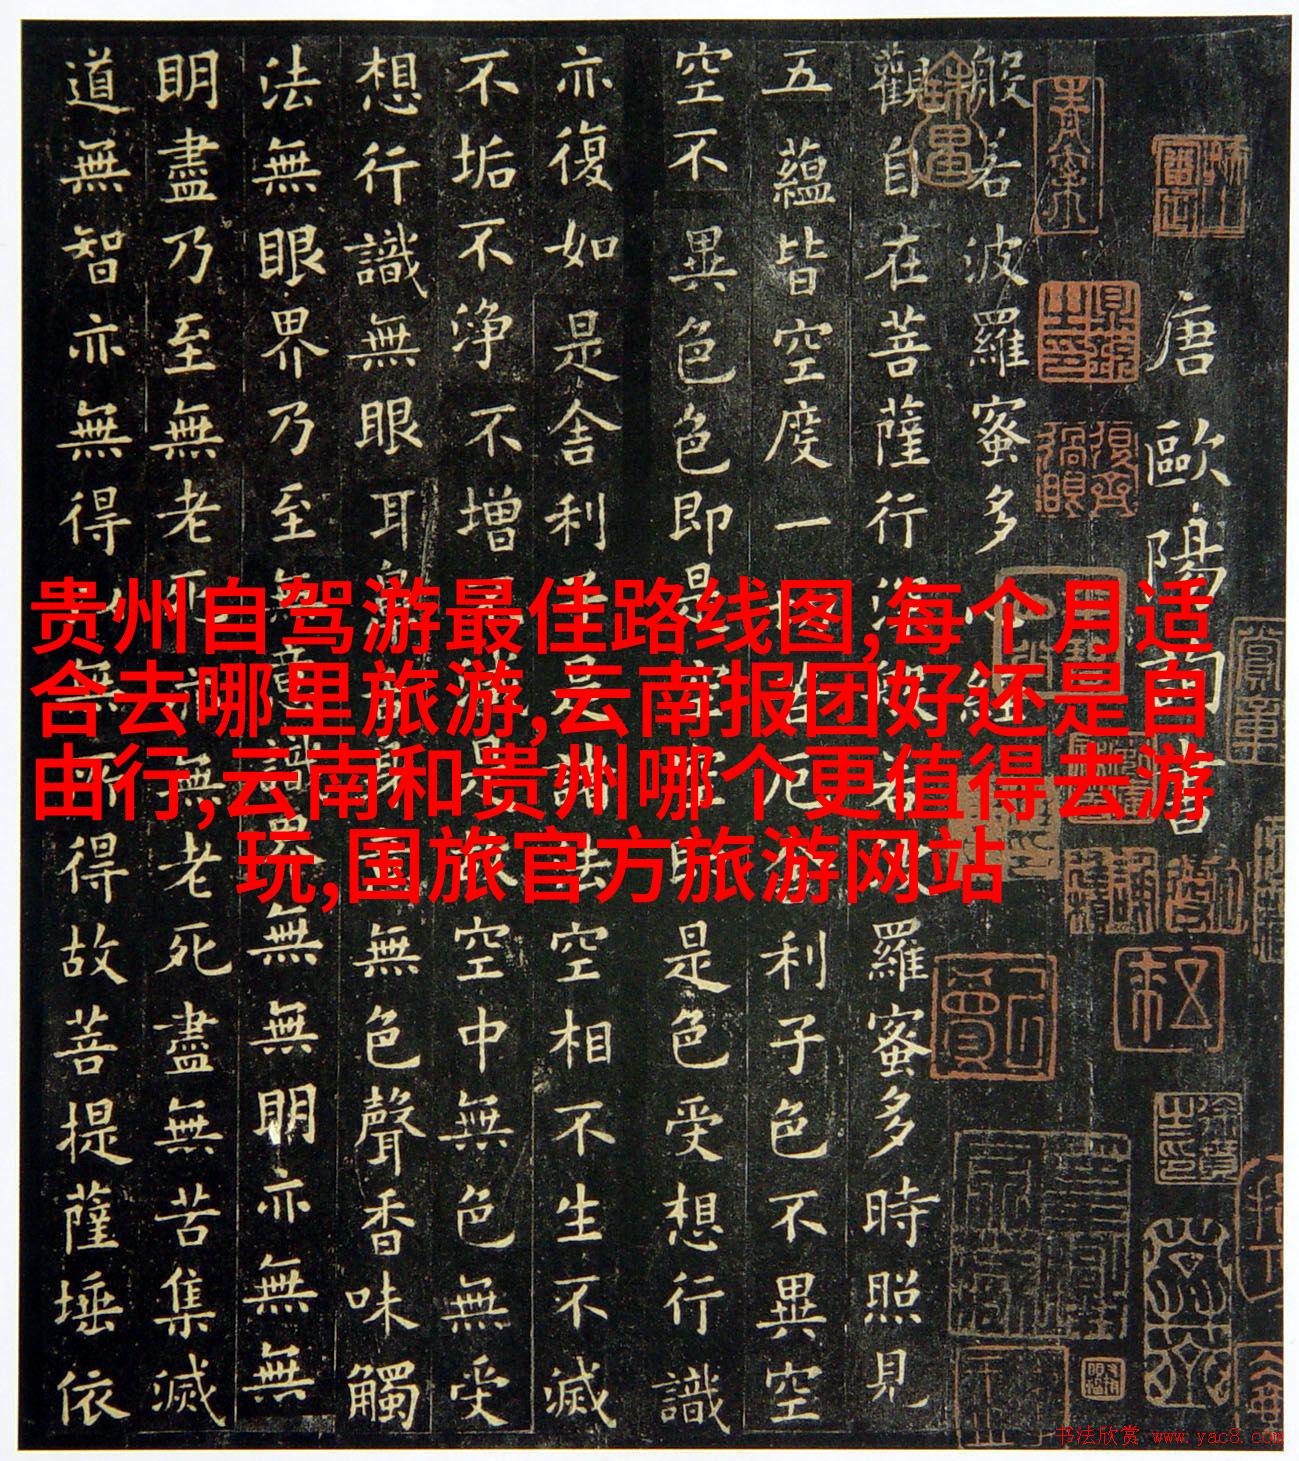 唐歐陽詢書
般若波羅蜜多心經
觀自在菩薩行深般若波羅蜜多時照見
五蘊皆空度一切苦厄舍利子色不異空
空不異色色即是空空即是色受想行識
亦復如是舍利子是諸法空相不生不滅
不垢不浄不增不減是故空中無色無受
想行識無眼耳鼻舌身意無色聲香味觸
法無眼界乃至無意識界無無明亦無無
明盡乃至無老死亦無老死盡無苦集滅
道無智亦無得以無所得故菩提薩埵依
贵州自驾游最佳路线图,每个月适
合去哪里旅游,云南报团好还是自
由行,云南和贵州哪个更值得去游
玩,国旅官方旅游网站
书法欣赏 www.yac8.com